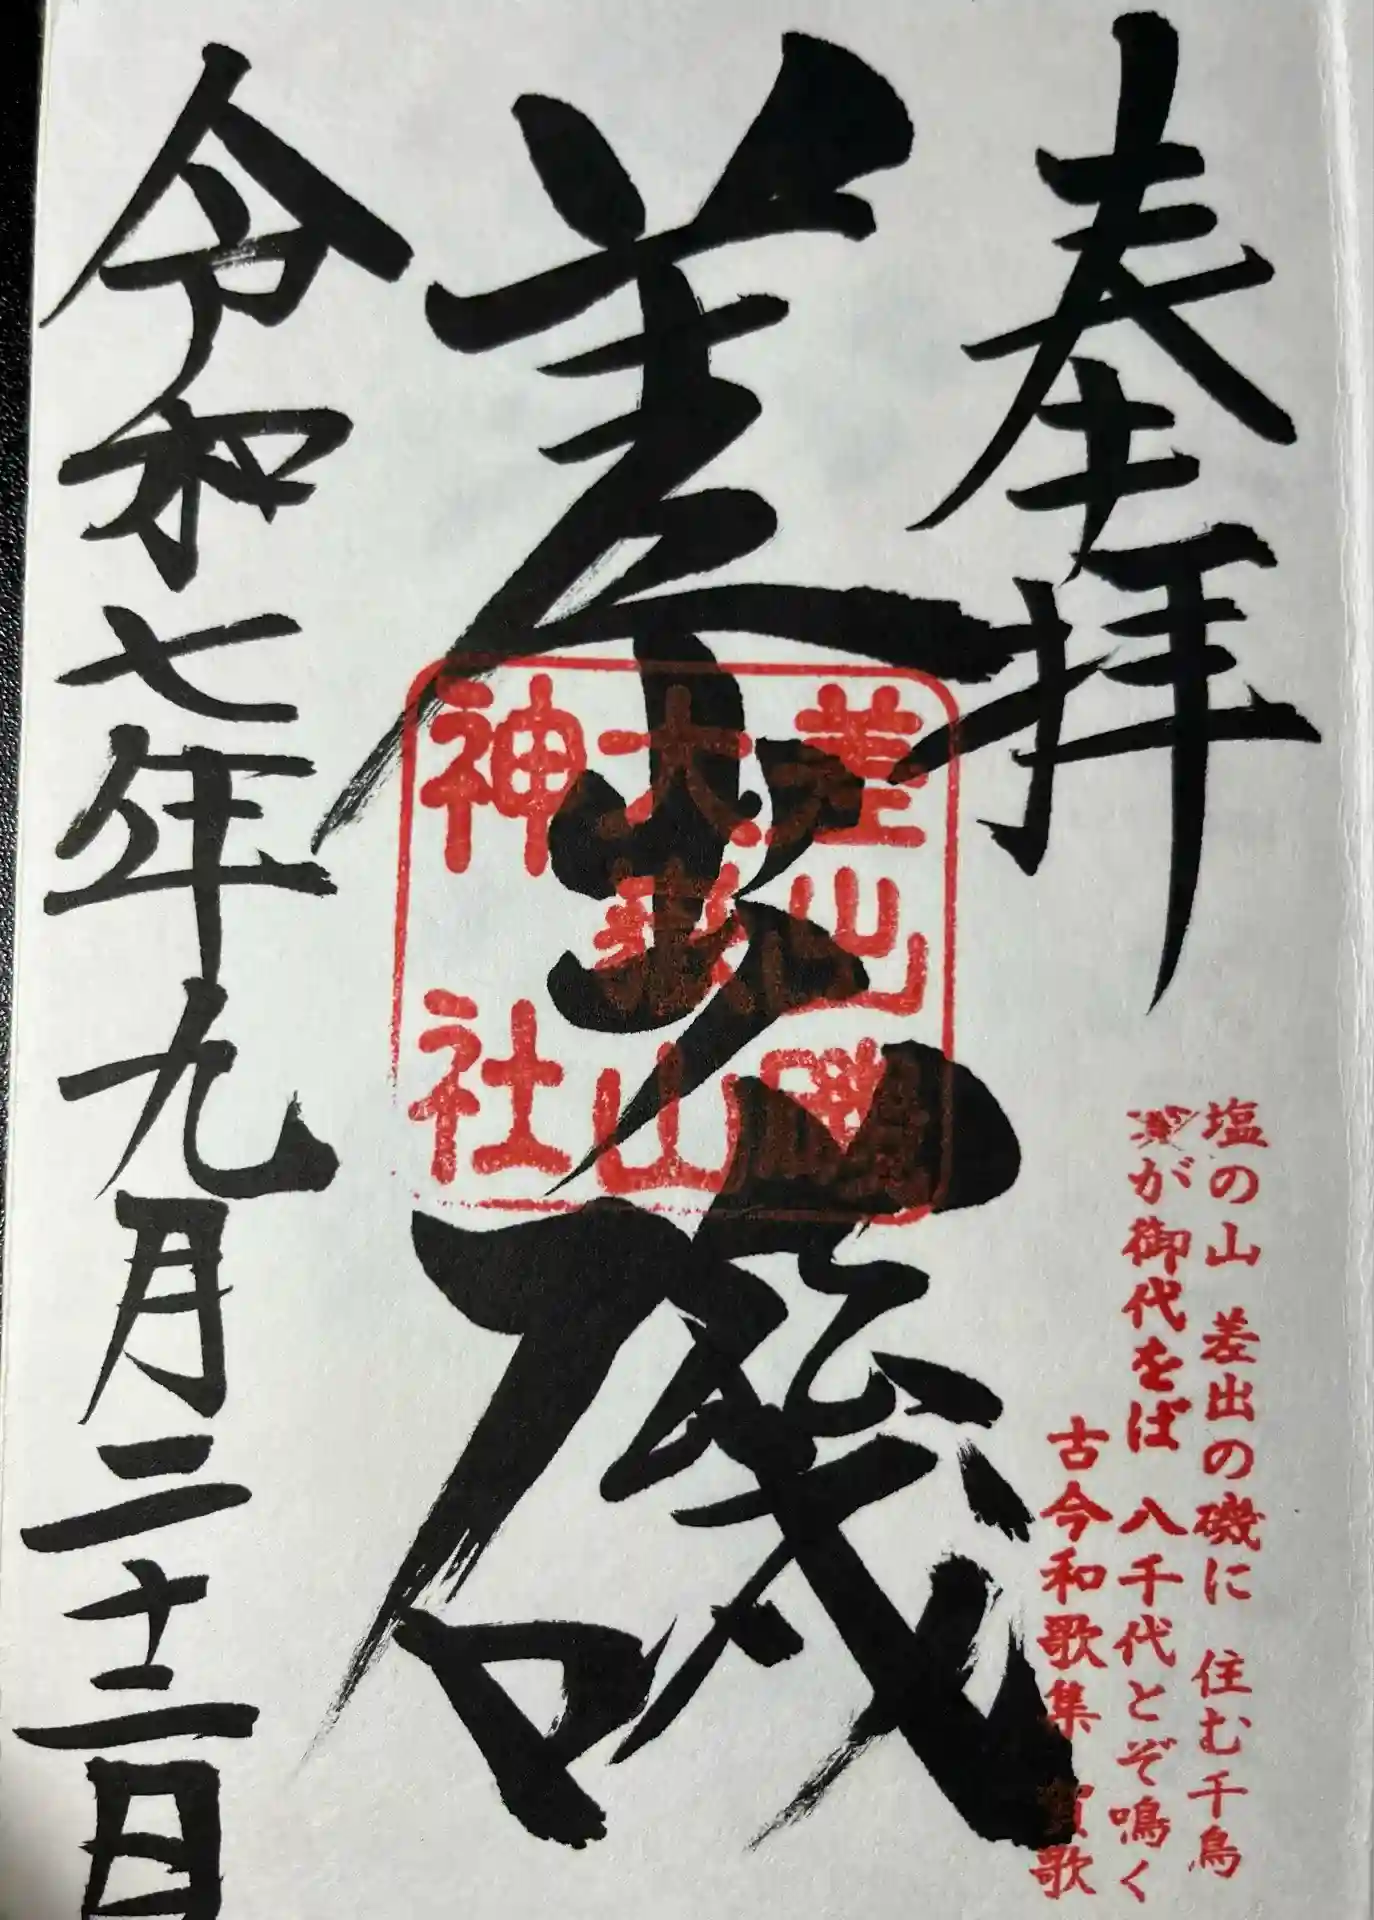 奉拝
塩の山 差出の磯に 住む千鳥
が御代をば 八千代とぞ鳴く
古今和歌集 賀歌
差出磯
差出磯
大嶽山
神社
令和七年九月二十二日